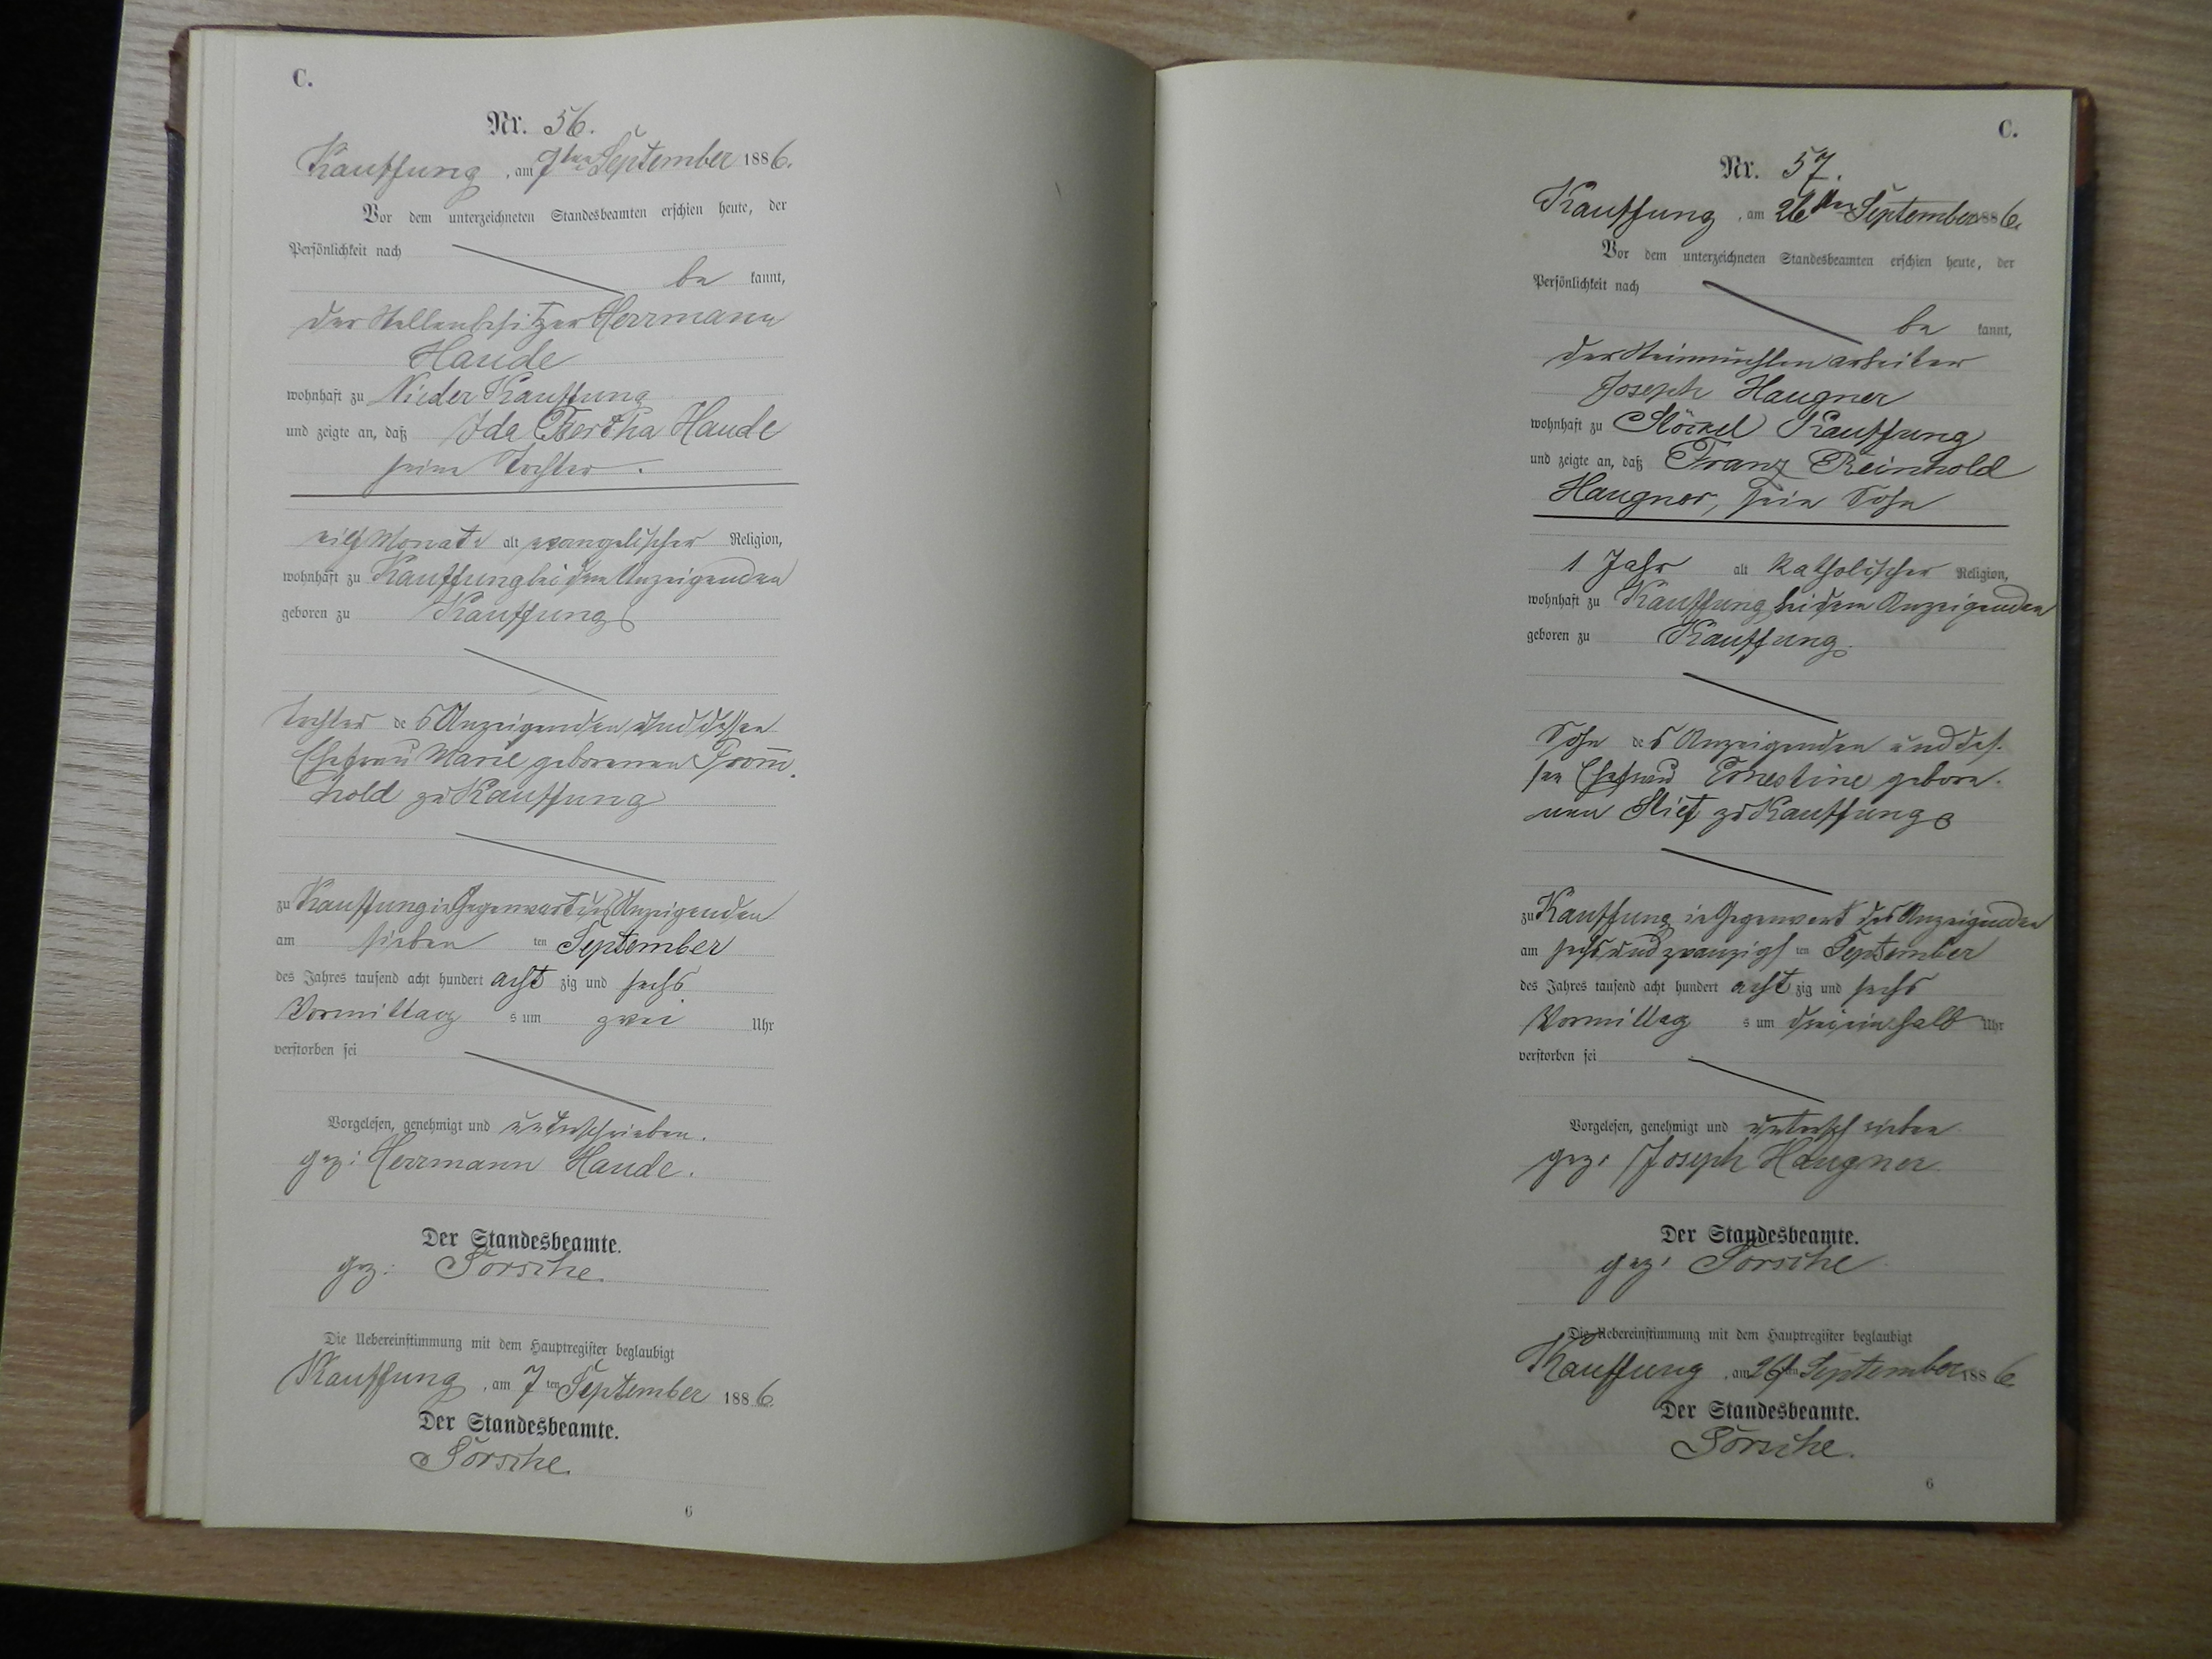 C.
Nr. 56.
Kauffung, am 7ten September 1886.
Vor dem unterzeichneten Standesbeamten erschien heute, der
Persönlichkeit nach
be kannt,
der Stellenbesitzer Herrmann
Haude
wohnhaft zu Nieder Kauffung
und zeigte an, daß Ida Bertha Haude
seine Tochter.
elf Monate alt evangelischer Religion,
wohnhaft zu Kauffung bei dem Anzeigenden
geboren zu Kauffung
Tochter des Anzeigenden und dessen
Ehefrau Marie geborenen From̅
hold zu Kauffung
zu Kauffung in Gegenwart des Anzeigenden
am sieben ten September
des Jahres tausend acht hundert acht zig und sechs
Vormittag s um zwei Uhr
verstorben sei
Vorgelesen, genehmigt und unterschrieben.
gez: Herrmann Haude.
Der Standesbeamte.
gez:
Die Uebereinstimmung mit dem Hauptregister beglaubigt
Kauffung, am 7ten September 1886.
Der Standesbeamte.
6
C.
Nr. 57.
Kauffung, am 26ten September 1886.
Vor dem unterzeichneten Standesbeamten erschien heute, der
Persönlichkeit nach
be kannt,
der arbeiter
Joseph Haugner
wohnhaft zu Stöckel Kauffung
und zeigte an, daß Franz Reinhold
Haugner, sein Sohn
1 Jahr alt katholischer Religion,
wohnhaft zu Kauffung bei dem Anzeigenden
geboren zu Kauffung.
Sohn des Anzeigenden und des-
sen Ehefrau Ernestine gebore-
nen Stief zu Kauffung
zu Kauffung in Gegenwart des Anzeigenden
am sechsundzwanzigsten September
des Jahres tausend acht hundert acht zig und sechs
Vormittag s um dreieinhalb Uhr
verstorben sei
Vorgelesen, genehmigt und unterschrieben
gez: Joseph Haugner
Der Standesbeamte.
gez:
Die Uebereinstimmung mit dem Hauptregister beglaubigt
Kauffung, am 26ten September 1886.
Der Standesbeamte.
6